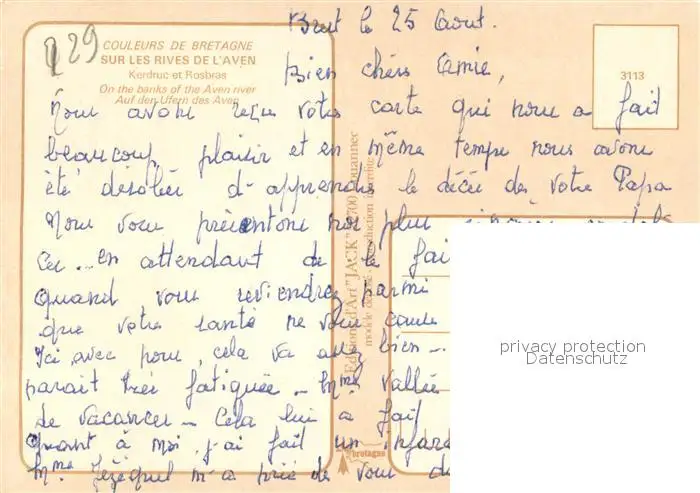 229
COULEURS DE BRETAGNE
SUR LES RIVES DE L'AVEN
Kerdruc et Rosbras
On the banks of the Aven river
Auf den Ufern des Aven
3113
Brest le 25 Aout.
Bien chers Amis,
Nous avons reçu votre carte qui nous a fait
beaucoup plaisir et en même temps nous avons
été désolés d'apprendre le décès de votre Papa
Nous vous présentons nos plus
en attendant de le fai
quand vous reviendrez parmi
que votre santé ne vous cause
Ici avec nous, cela va assez bien -
parait très fatiguée - Mme Vallée
de vacances - Cela lui a fait
Quant à moi j'ai fait un infarc
Mme Jézéquel m'a prié de vous
Editions d'Art "JACK"
modèle déposé - reproduction interdite
bretagne
privacy protection
Datenschutz